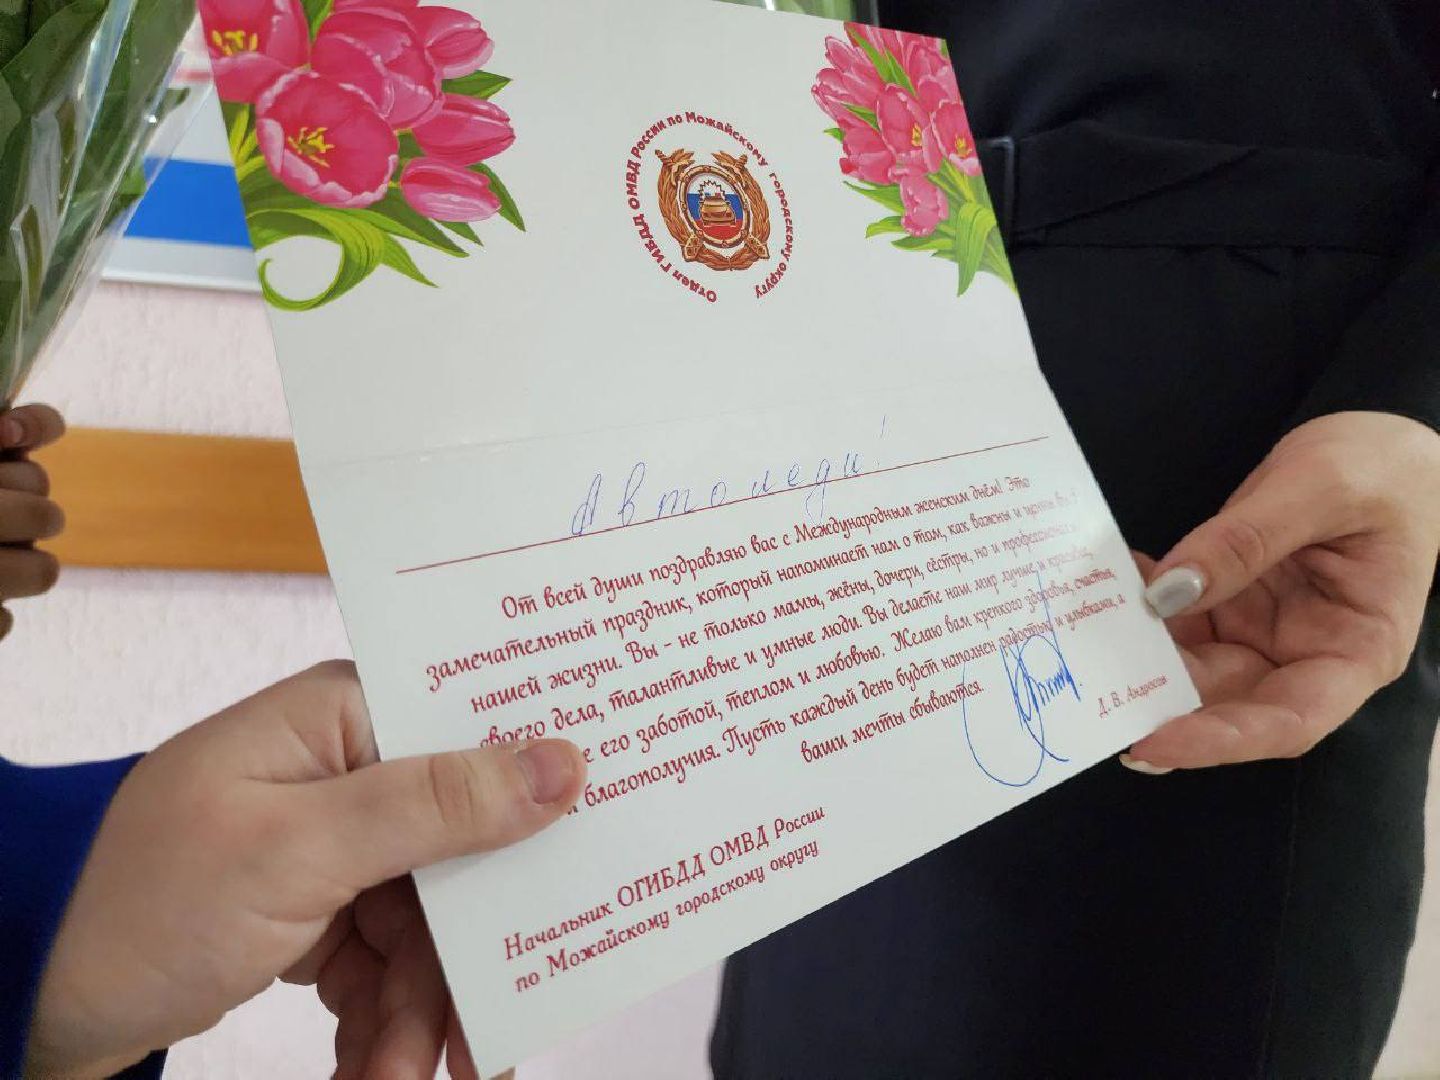 Отдел ГИБДД ОМВД России по Можайскому городскому округу
Автоледи!
От всей души поздравляю вас с Международным женским днём! Это
замечательный праздник, который напоминает нам о том, как важны и ценны вы в
нашей жизни. Вы - не только мамы, жёны, дочери, сёстры, но и профессионалы
своего дела, талантливые и умные люди. Вы делаете наш мир лучше и красивее,
е его заботой, теплом и любовью. Желаю вам крепкого здоровья, счастья,
и благополучия. Пусть каждый день будет наполнен радостью и улыбками, а
ваши мечты сбываются.
Начальник ОГИБДД ОМВД России
по Можайскому городскому округу
Д. В. Андросов